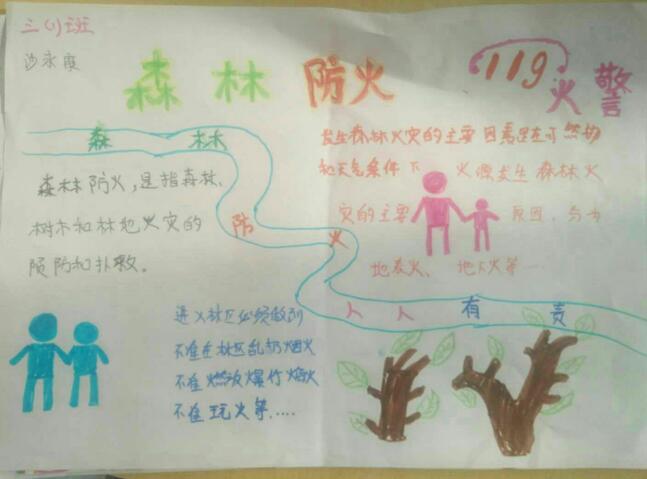 三(1)班
沙永康
森林防火
119
火警
森林
森林防火,是指森林、
树木和林地火灾的
预防和扑救。
防火
人人有责
发生森林火灾的主要因素是在可然物
和天气条件下 火源发生森林火
灾的主要 原因,分为
地表火、地下火等…
进入林区必须做到
不准在林区乱扔烟火
不准燃放爆竹烟火
不准玩火等.…